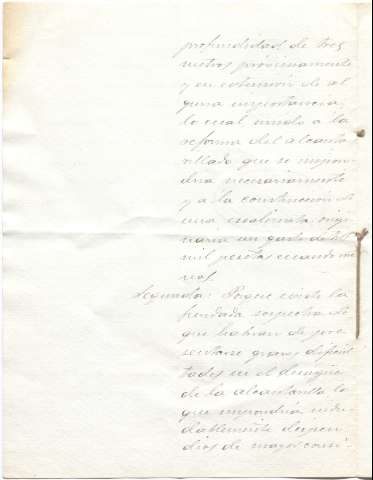 profundidad de tres
metros próximamente
y en estensión de al
guna importancia,
lo cual, unido a la
reforma del alcanta
rillado que se impon
dría necesariamente
y a la construcción de
una escalinata origi
naria un gasto de
mil pesetas cuando me
nos.
Segunda: Porque existe la
fundada sospecha de
que habian de pre
sentarse graves dificul
tades en el desagüe
de la alcantarilla lo
que impondría indu
dablemente dispen
dios de mayor consi-